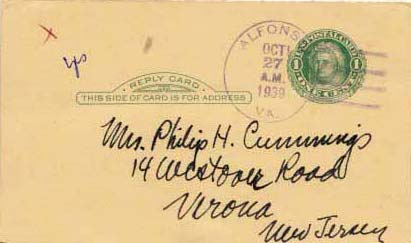 x
yes
ALFONS
OCT
27
A.M.
1939
VA.
U.S. POSTAL CARD
1 1
REPLY CARD
THIS SIDE OF CARD IS FOR ADDRESS
Mrs. Philip H. Cummings
14 Westover Road
Verona
New Jersey